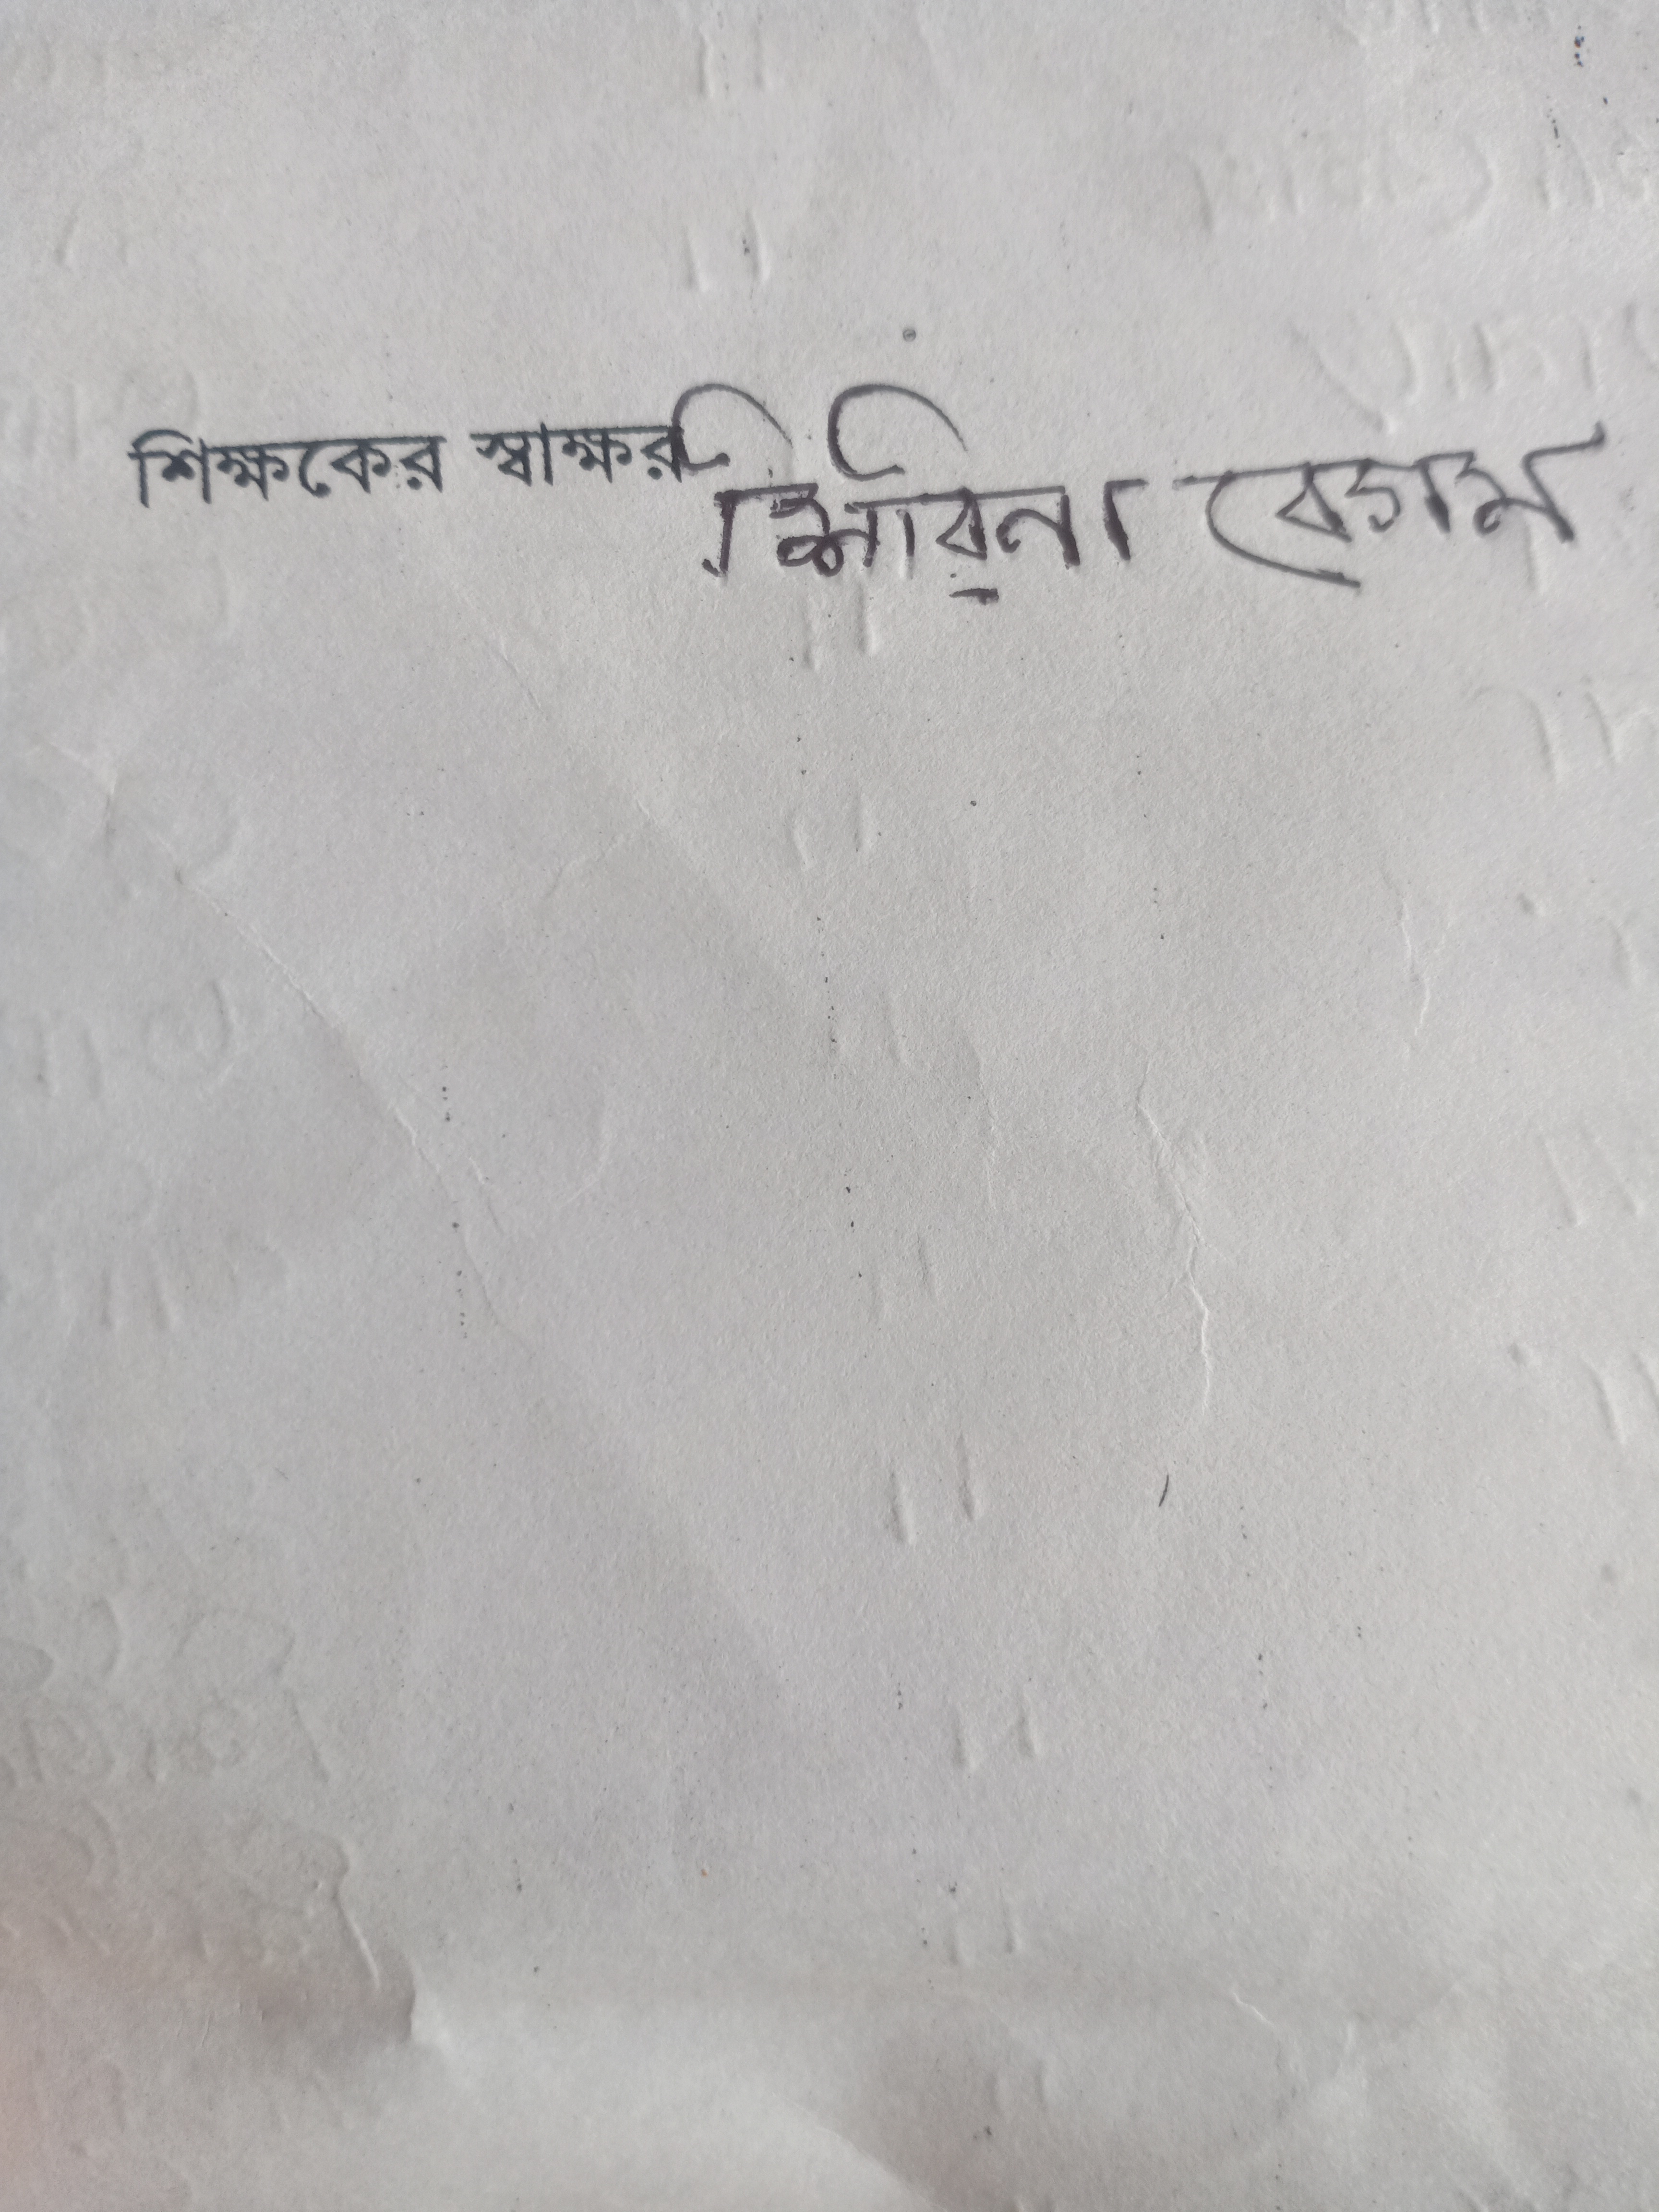 শিক্ষকের স্বাক্ষর শিরিনা বেগম